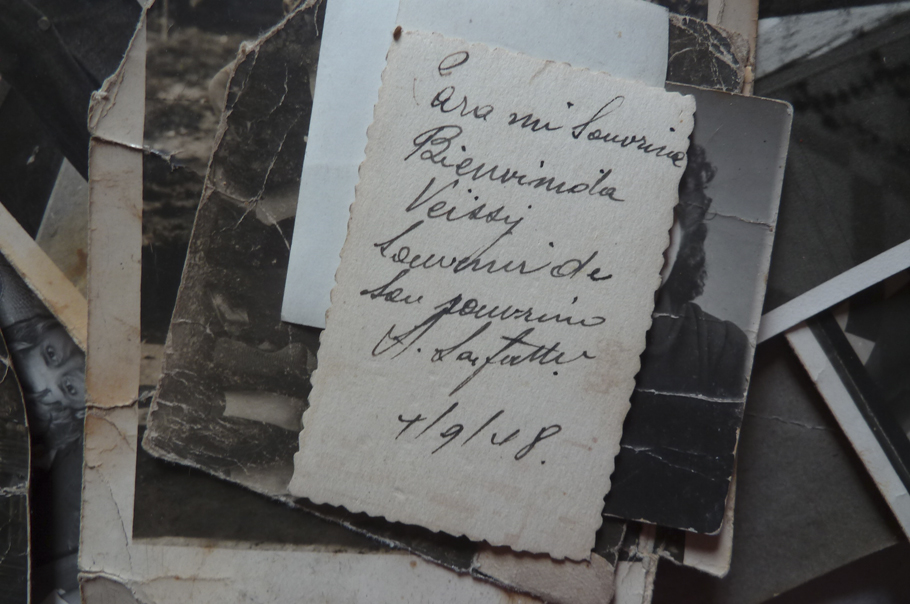 Para mi Souvrina
Bienvinida
Veissy
Souvenir de
sou souvrino
S. Sarfatti
4/9/48.